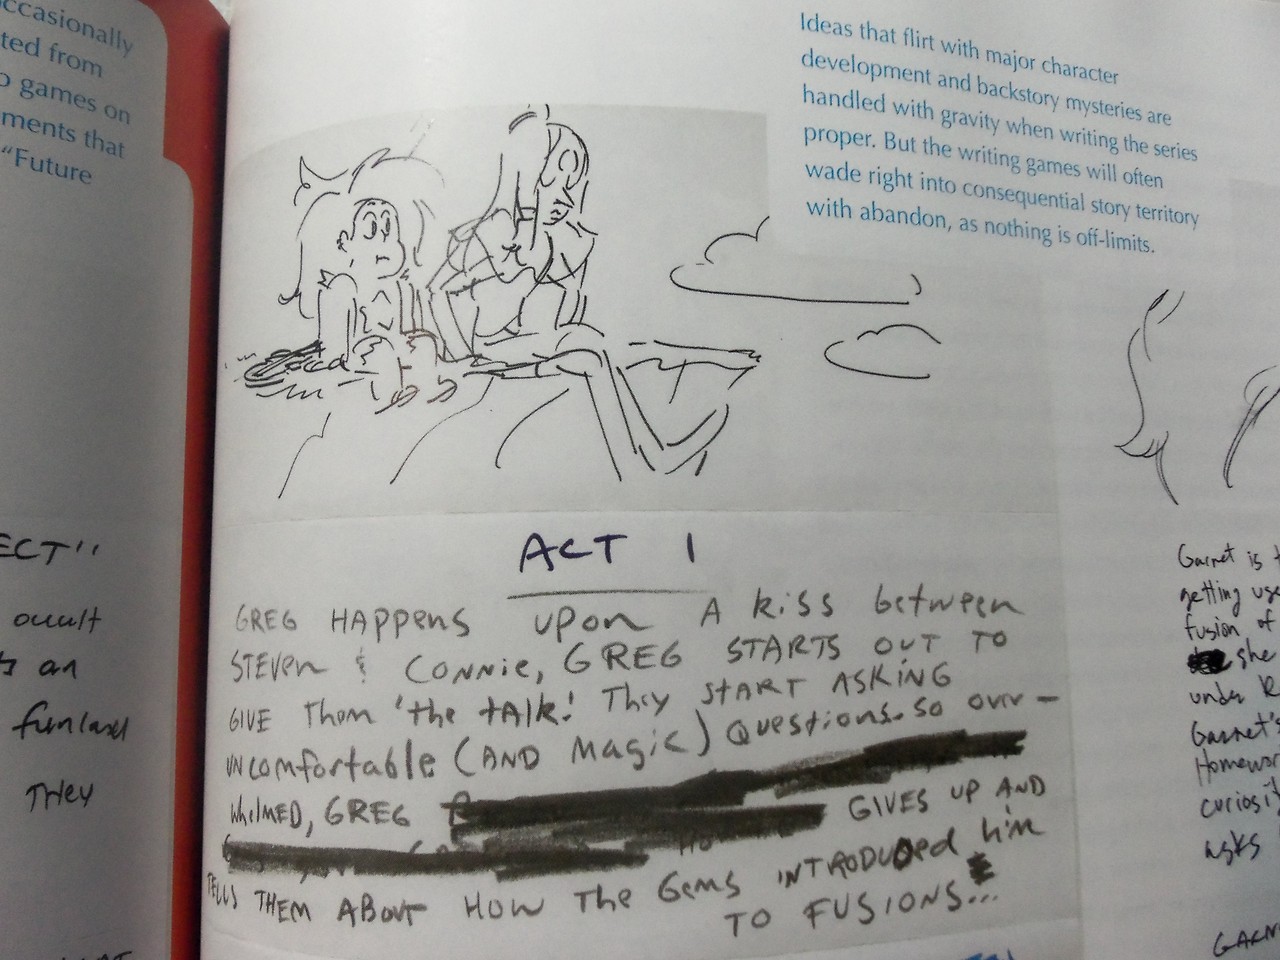 occasionally
ted from
games on
ments that
"Future
ECT"
occult
an
They
Ideas that flirt with major character
development and backstory mysteries are
handled with gravity when writing the series
proper. But the writing games will often
wade right into consequential story territory
with abandon, as nothing is off-limits.
ACT 1
GREG HAPPENS UPON A KISS between
STEVEN & CONNIE, GREG STARTS OUT TO
GIVE Them 'the tALK! They START ASKING
UNComfortable (AND MAGIC) Questions. So over-
WHELMED, GREG GIVES UP AND
TELLS THEM ABOUT HOW THE GEMS INTRODUCED him
TO FUSIONS...
Garnet is
getting
fusion of
she
under
Garnet's
Homewor
curiosi
asks
GARN